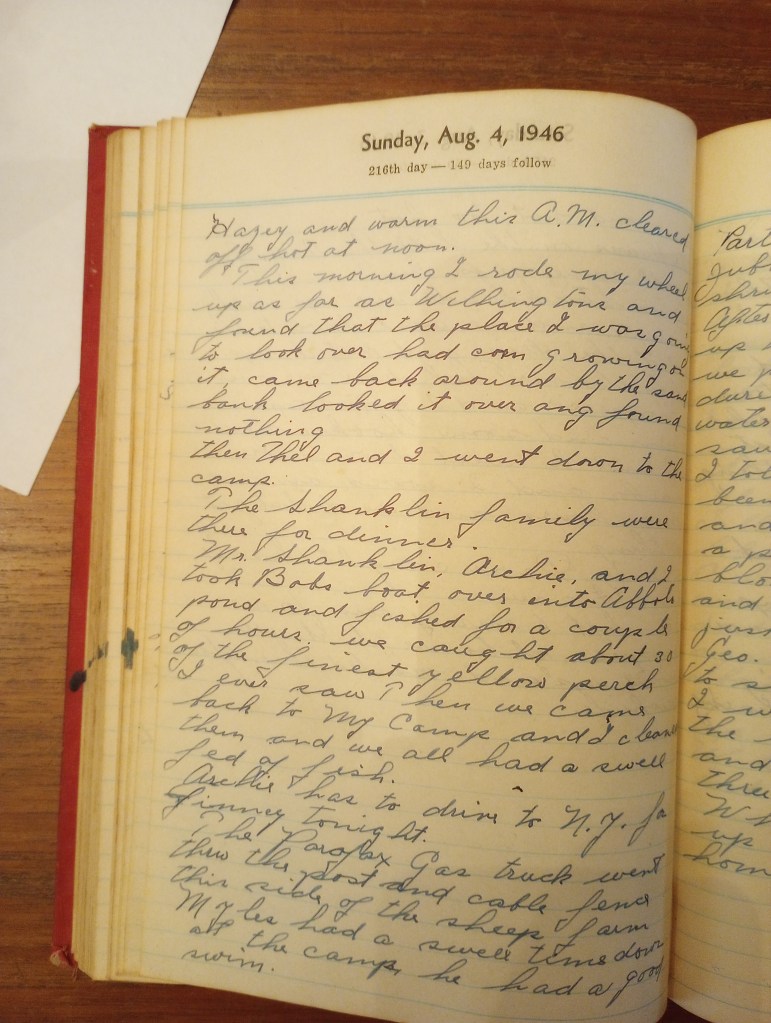 Sunday, Aug. 4, 1946
216th day — 149 days follow
Hazey and warm this A.M. cleared
off hot at noon.
This morning I rode my wheel
up as far as Withingtons and
found that the place I was going
to look over had corn growing on
it, came back around by the sand
bank looked it over ang found
nothing
then Thel and I went down to the
camp.
The Shanklin family were
there for dinner.
Mr. Shanklin, Archie, and I
took Bobs boat over into Abbots
pond and fished for a couple
of hours. we caught about 30
of the finest yellow perch
I ever saw Then we came
back to My Camp and I cleaned
them and we all had a swell
fed of fish.
Archie has to drive to N.Y. for
Finney tonight.
The Gas truck went
threw the post and cable fence
this side of the sheep farm
Myles had a swell time down
at the camp, he had a good
swim.
Part
shru
After
up
we p
duri
water
saw
I tol
been
and
a p
blo
and
jus
Geo.
to s
I w
the
and
three
Wh
up
hom